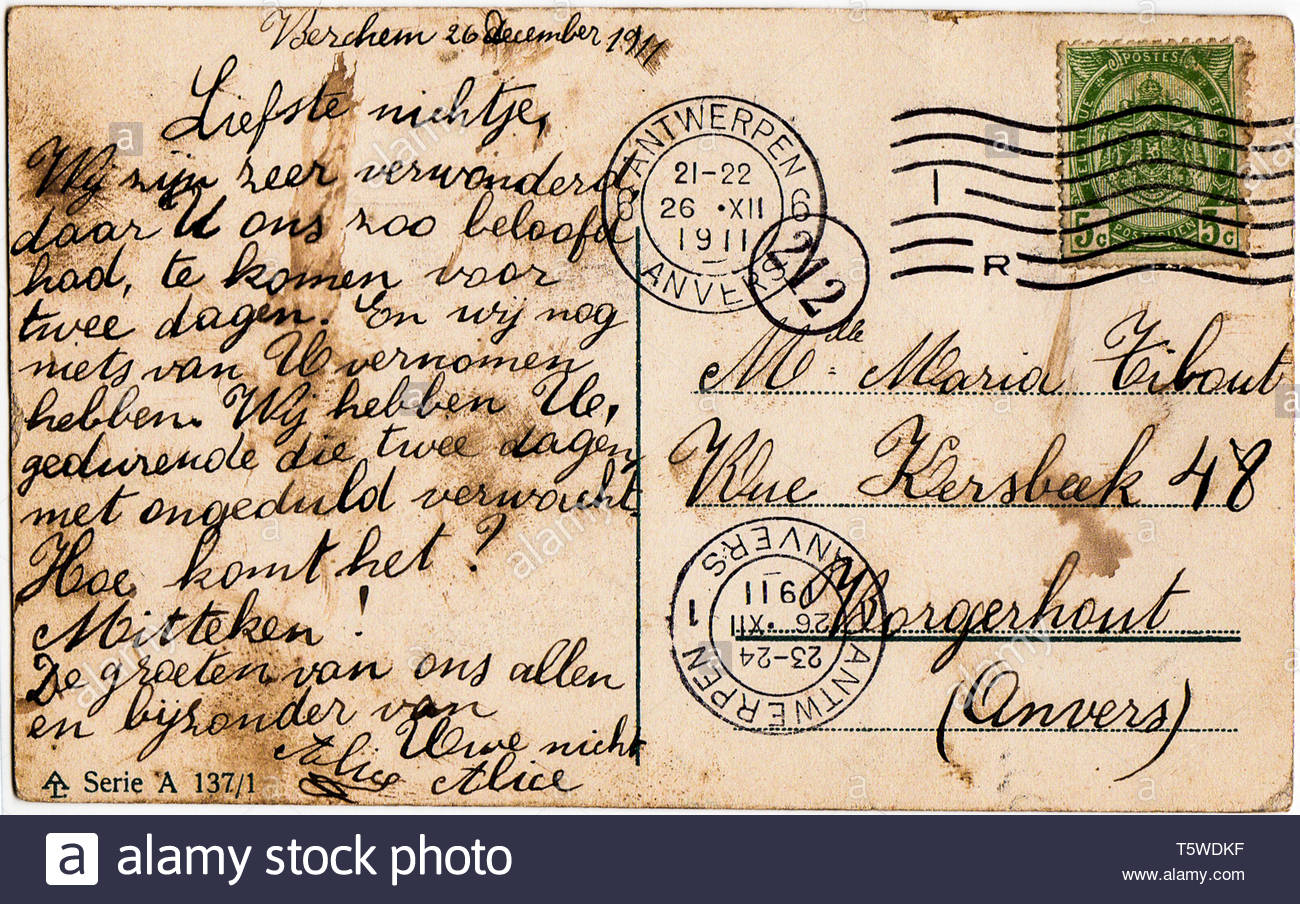 Berchem 26 december 1911
Liefste nichtje,
Wij zijn zeer verwonderd,
daar U ons zoo beloofd
had, te komen voor
twee dagen. En wij nog
niets van U vernomen
hebben. Wij hebben Ue,
gedurende die twee dagen
met ongeduld verwacht.
Hoe komt het?
Mitteken!
De groeten van ons allen
en bijzonder van
Uwe nicht
Alice Alice
Serie A 137/1
ANTWERPEN
6 6
21-22
26 ·XII
1911
ANVERS
212
I
R
POSTES
BELGIQUE BELGIË
5c POSTERIJEN 5c
Mlle Maria Tibout
Rue Kersbeek 48
Borgerhout
(Anvers)
1 ANTWERPEN 1
23-24
26·XII
1911
ANVERS
alamy
alamy stock photo
T5WDKF
www.alamy.com